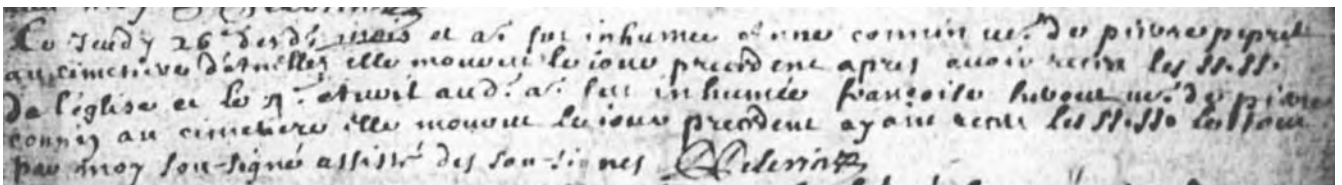 Le Jeudy 26e desdt mois et a. fut inhumée et une commun ve. de pierre pepret
au cimetiere d'etuelles elle mourut le iour precedent apres avoir receu les SS.SS.
de l'église et le 4e. avril aud. a. fut inhumée françoise hubout ve. de pierre
connin au cimetiere elle mourut le iour precedent ayant receu les SS.SS. le tout
par moy sou-signé assisté des sou-signes